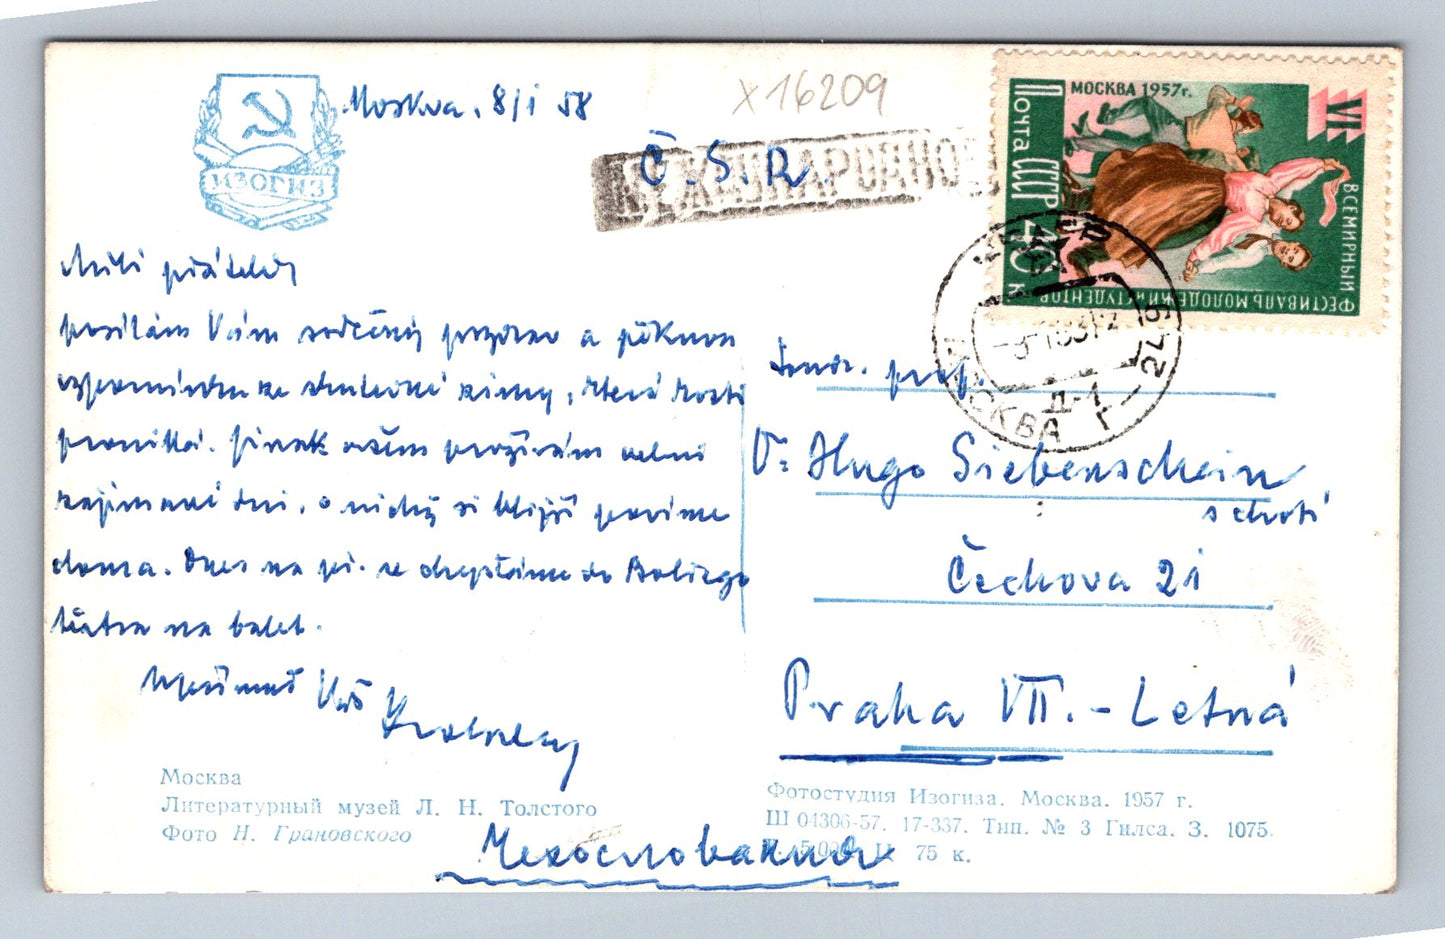 ИЗОГИЗ
Moskva, 8/I 58
x 16209
МЕЖДУНАРОДНОЕ
Č. S. R.
МОСКВА 1957г.
ПОЧТА СССР 40 К
VI
ВСЕМИРНЫЙ
ФЕСТИВАЛЬ МОЛОДЕЖИ И СТУДЕНТОВ
МОСКВА Г-249
II-1
Milí přátelé,
posílám Vám srdečný pozdrav a pěknou
vzpomínku ze sluneční zimy, která
. Jinak ovšem prožívám velmi
zajímavé dni, o nichž si povíme
doma. Dnes na se chystáme do Bolšego
těatra na balet.
Upřímně Váš
Soudr. prof.
Dr Hugo Siebenschein
s chotí
Čechova 21
Praha VII. - Letná
Москва
Литературный музей Л. Н. Толстого
Фото Н. Грановского
Фотостудия Изогиза. Москва. 1957 г.
Ш 04306-57. 17-337. Тип. № 3 Гилса. З. 1075.
Ц 75 к.
Чехословакия